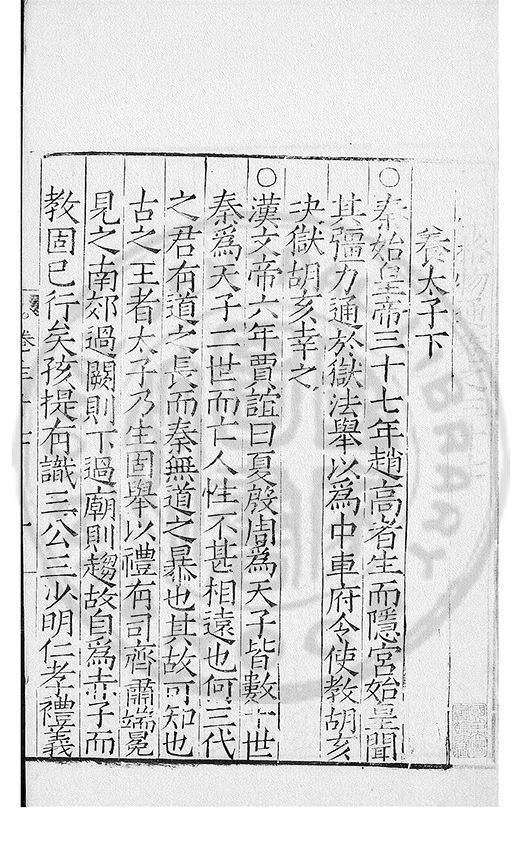 養太子下
○秦始皇帝三十七年趙高者生而隱宮始皇聞
其彊力通於獄法舉以為中車府令使教胡亥
決獄胡亥幸之
○漢文帝六年賈誼曰夏殷周為天子皆數十世
秦為天子二世而亡人性不甚相遠也何三代
之君有道之長而秦無道之暴也其故可知也
古之王者太子乃生固舉以禮有司齊肅端冕
見之南郊過闕則下過廟則趨故自為赤子而
教固已行矣孩提有識三公三少明仁孝禮義